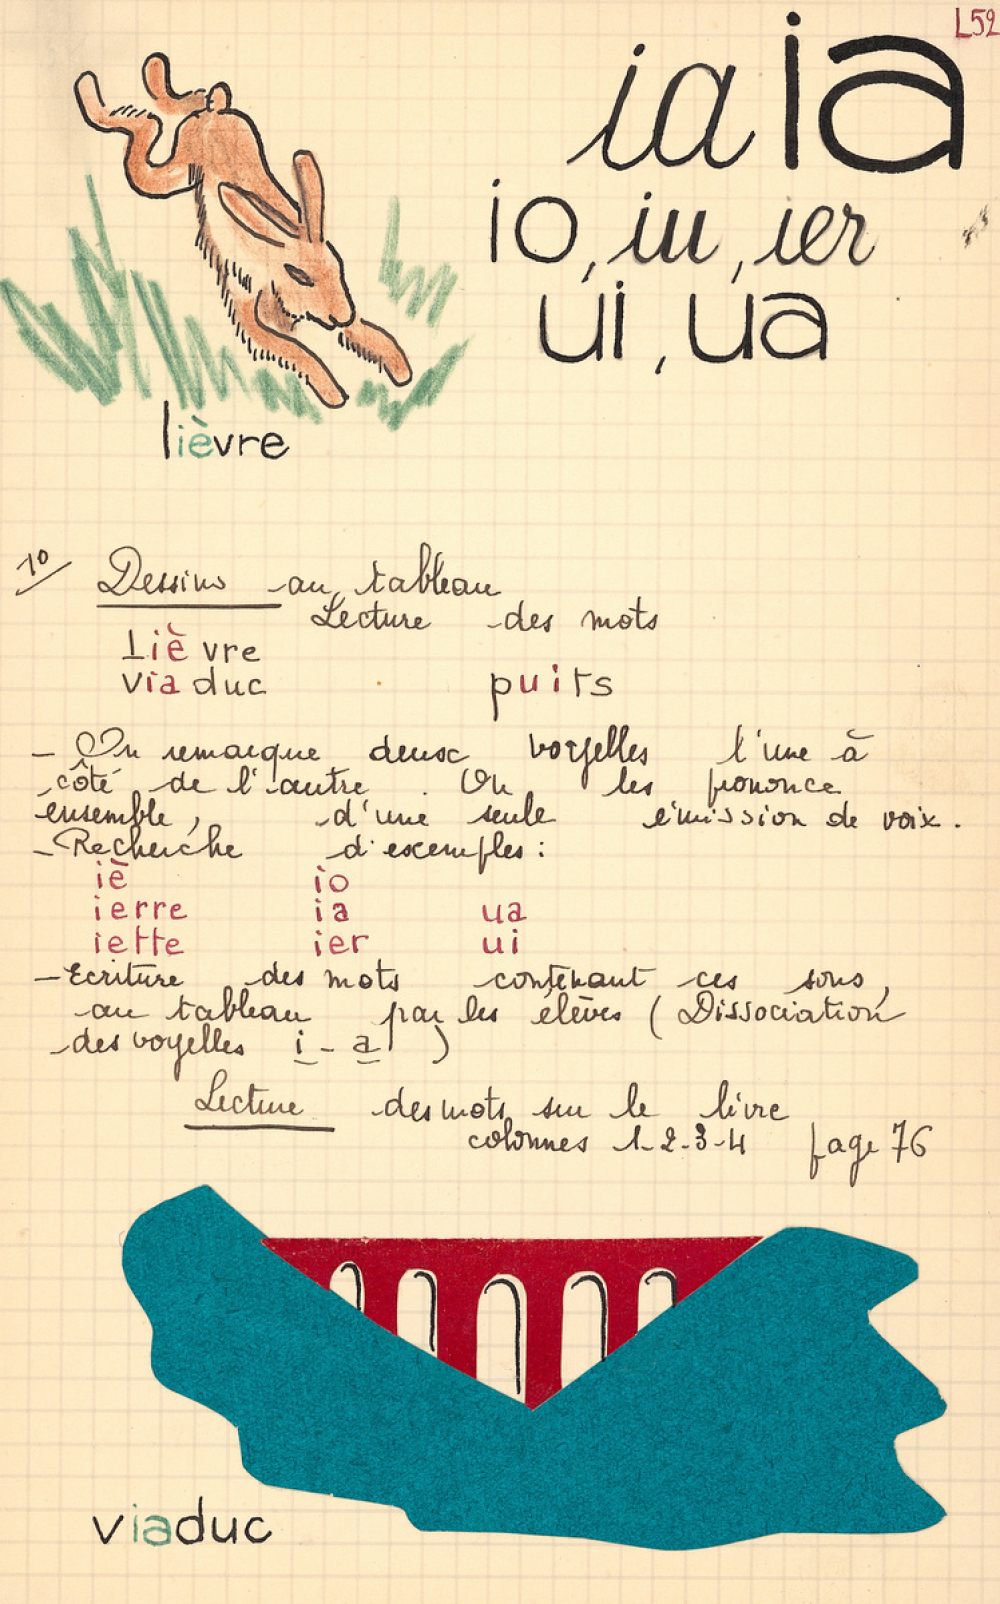 L52
ia ia
io, iu, ier
ui, ua
lièvre
1º/ Dessins au tableau
Lecture des mots
Lièvre
viaduc puits
- On remarque deux voyelles l'une à
côté de l'autre. On les prononce
ensemble, d'une seule émission de voix.
- Recherche d'exemples :
iè io
ierre ia ua
iette ier ui
- Ecriture des mots contenant ces sons,
au tableau par les élèves (Dissociation
des voyelles i - a )
Lecture des mots sur le livre
colonnes 1-2-3-4 page 76
viaduc